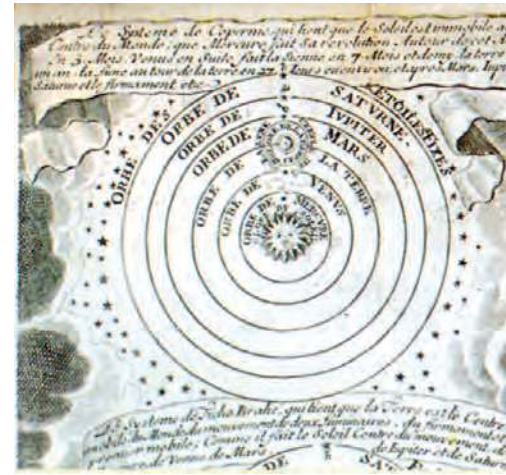 Le Systeme de Copernic qui tient que le Soleil est immobile a
Centre du Monde; que Mercure fait Sa revolution Autour de cet
En 3. Mois. Venus en Suite fait la Sienne en 7 Mois et demi la terre
un an la lune autour de la terre en 27. et apres Mars. Jupi
Saturne et le firmament etc.
ORBE DES ETOILES FIXES
ORBE DE SATVRNE.
ORBE DE IVPITER
ORBE DE MARS
ORBE DE LA TERRE
ORBE DE VENVS
ORBE DE MERCVRE
Le Systeme de Ticho Brahe, qui tient que la Terre est le Centre
du Monde du mouvement de deux Luminaires, du firmament et
premier mobile; Comme il fait le Soleil Centre du mouvement de
de Venus de Mars. de Jupiter et de Satur
DE